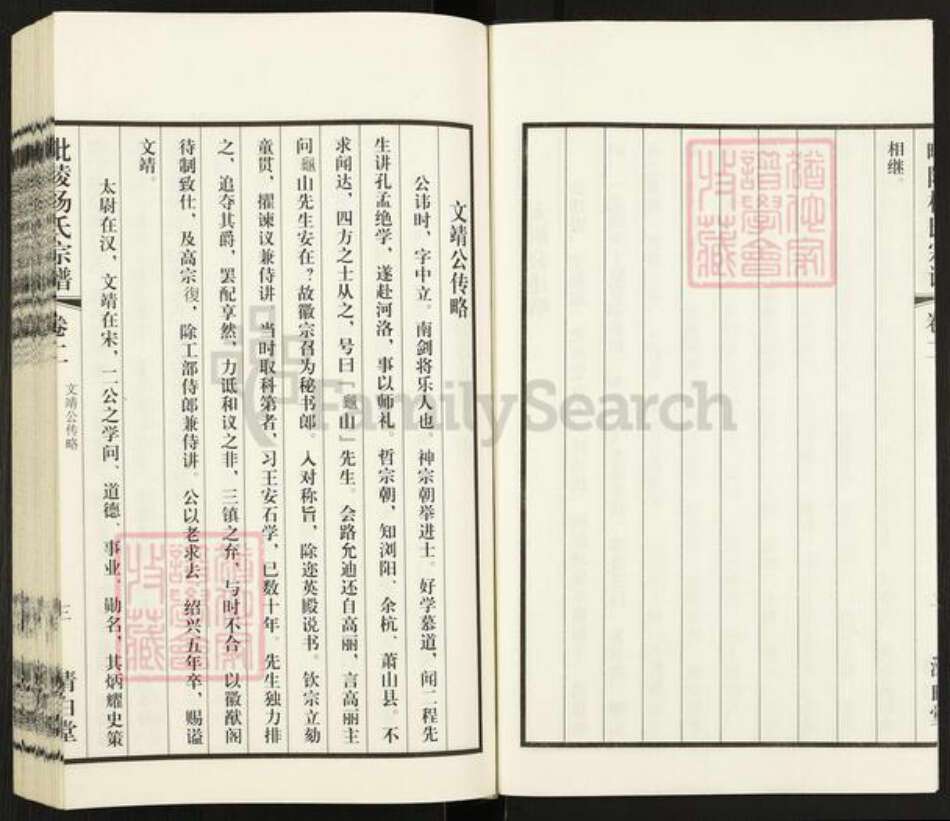 相继。
文靖公传略
公讳时，字中立。南剑将乐人也。神宗朝举进士。好学慕道，闻二程先
生讲孔孟绝学，遂赴河洛，事以师礼。哲宗朝，知浏阳、余杭、萧山县。不
求闻达，四方之士从之，号曰「龜山」先生。会路允迪还自高丽，言高丽主
问龜山先生安在？故徽宗召为秘书郎。入对称旨，除迩英殿说书。钦宗立劾
童贯，擢谏议兼侍讲。当时取科第者，习王安石学，已数十年。先生独力排
之，追夺其爵，罢配享然，力诋和议之非，三镇之弃，与时不合，以徽猷阁
待制致仕，及高宗復，除工部侍郎兼侍讲。公以老求去，绍兴五年卒，赐谥
文靖。
太尉在汉，文靖在宋，二公之学问、道德、事业、勋名，其炳耀史策
毗陵杨氏宗谱
卷二
文靖公传略
三
清白堂
猶他家譜學會收藏
猶他家譜學會收藏
FamilySearch